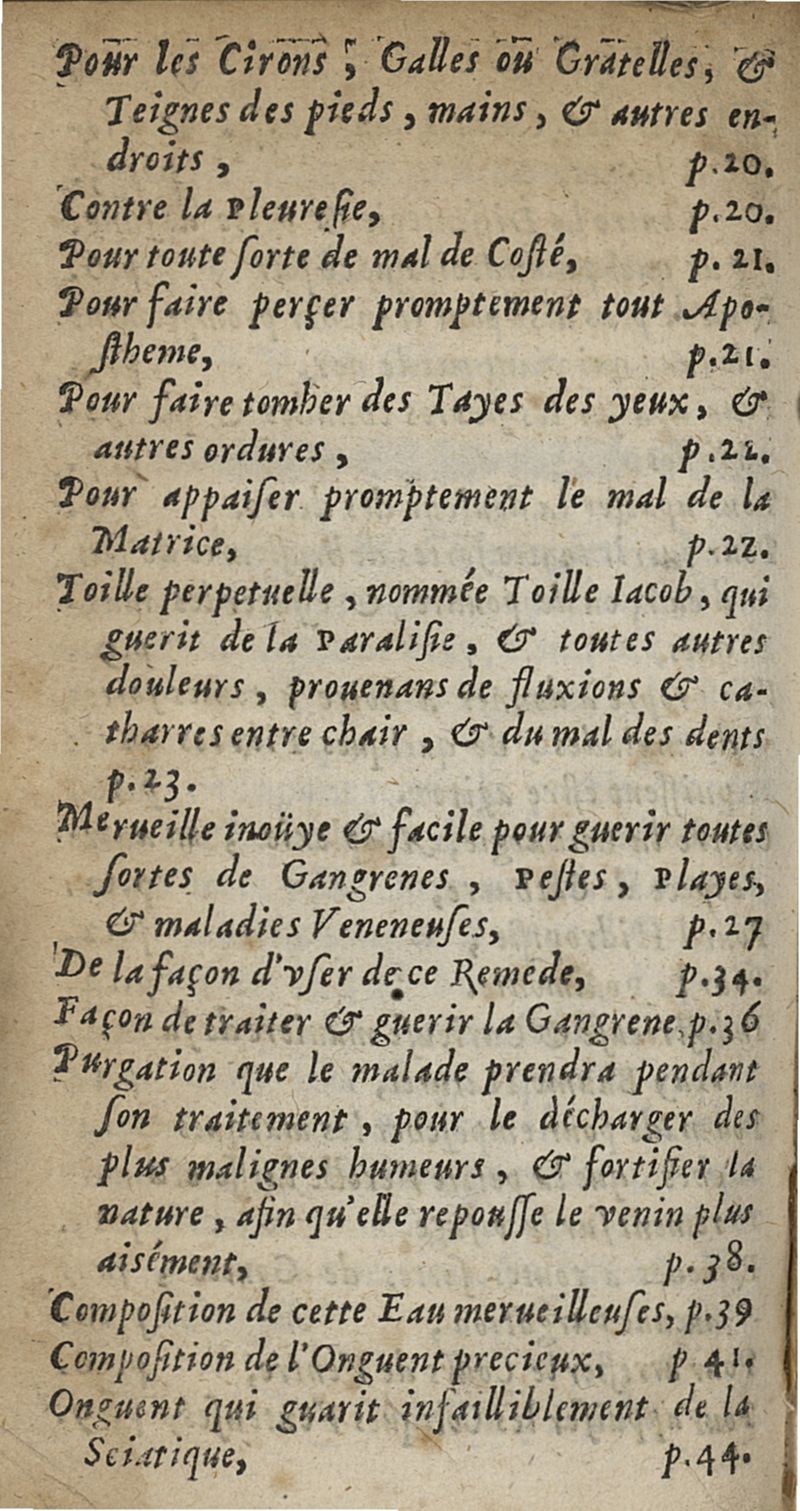 Pour les Cirons, Galles ou Gratelles, &
Teignes des pieds, mains, & autres en-
droits, p.20.
Contre la Pleuresie, p.20.
Pour toute ſorte de mal de Coſté, p. 21.
Pour faire perçer promptement tout Apo-
ſtheme, p.21.
Pour faire tomber des Tayes des yeux, &
autres ordures, p.22.
Pour appaiſer promptement le mal de la
Matrice, p.22.
Toille perpetuelle, nommée Toille Iacob, qui
guerit de la Paraliſie, & toutes autres
douleurs, prouenans de fluxions & ca-
tharres entre chair, & du mal des dents
p.23.
Merueille inoüye & facile pour guerir toutes
ſortes de Gangrenes, Peſtes, Playes,
& maladies Veneneuſes, p.27
De la façon d'vſer de ce Remede, p.34.
Façon de traiter & guerir la Gangrene p.36
Purgation que le malade prendra pendant
ſon traitement, pour le décharger des
plus malignes humeurs, & fortifier la
nature, afin qu'elle repouſſe le venin plus
aisément, p.38.
Compoſition de cette Eau merueilleuſes, p.39
Compoſition de l'Onguent precieux, p 41.
Onguent qui guarit infailliblement de la
Sciatique, p.44.